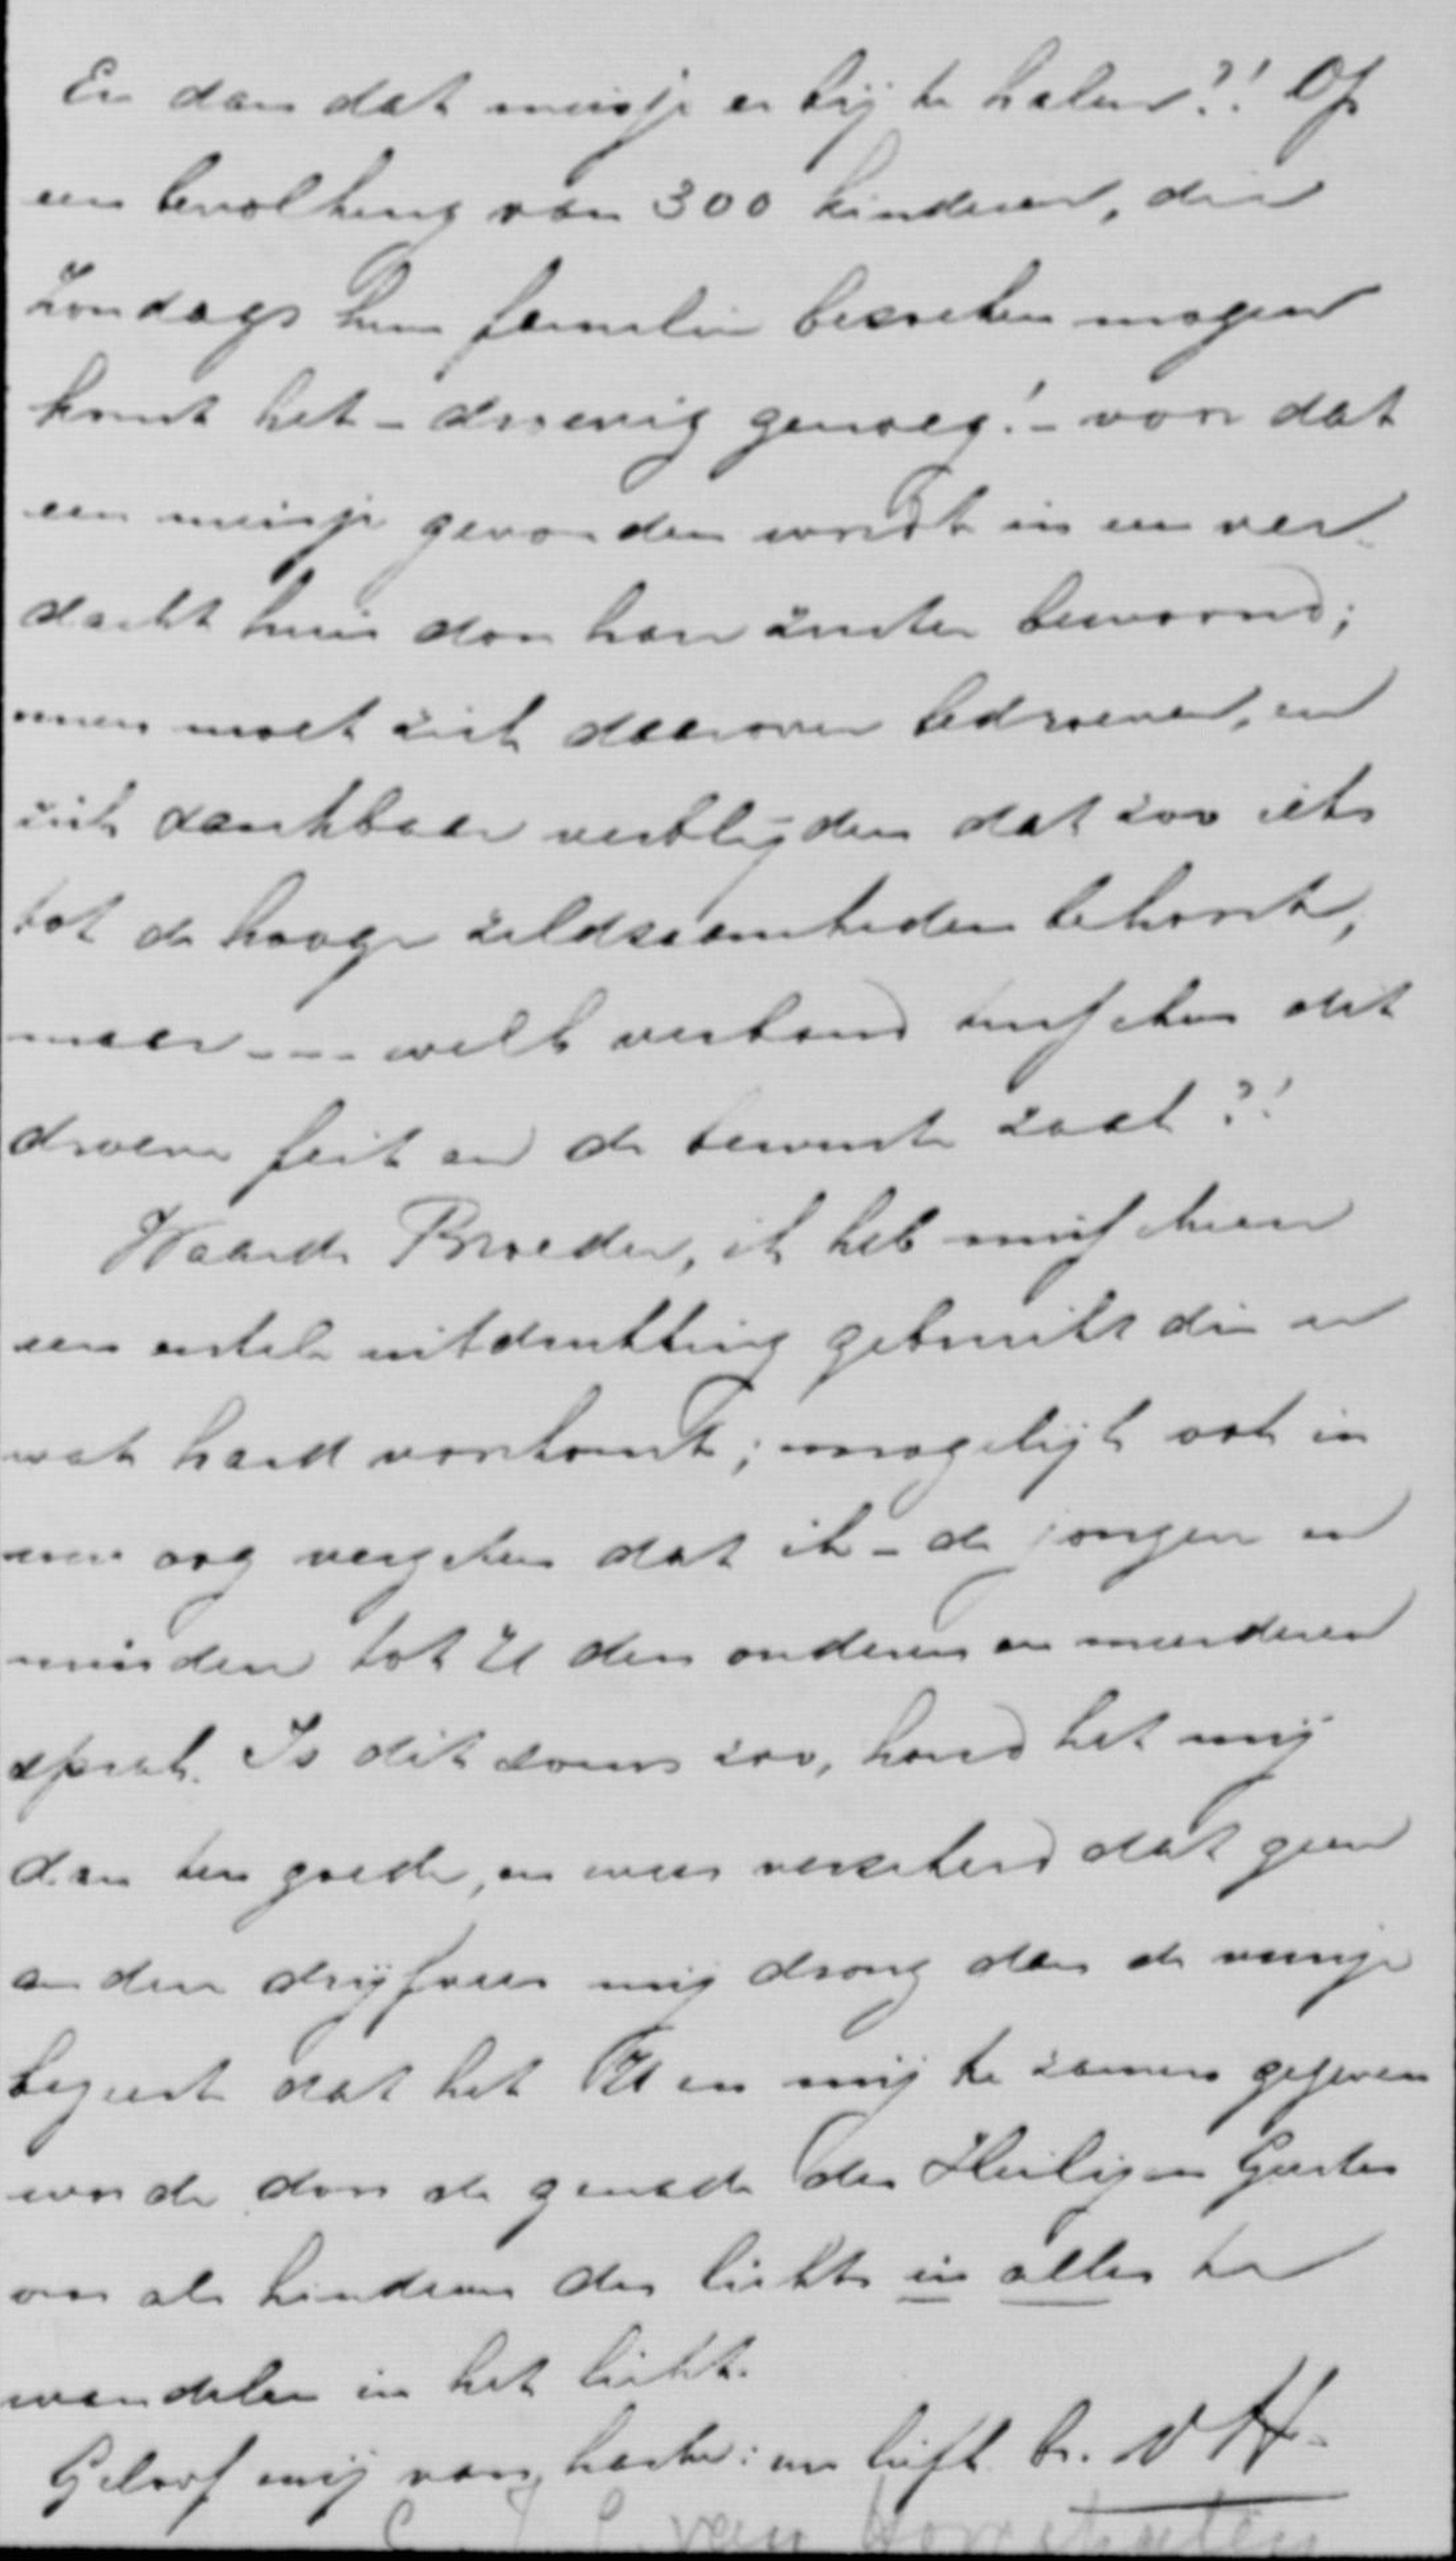 En dan dat meisje er bij te halen?! Op
een bevolking van 300 kinderen, die
Zondags hun familie bezoeken mogen
komt het - droevig genoeg! - voor dat
een meisje gevonden wordt in een ver-
dacht huis door haar zuster bewoond;
men moet zich daarover bedroeven, en
zich dankbaar verblijden dat zoo iets
tot de hooge zeldzaamheden behoort,
maar --- welk verband tusschen dat
droeve feit en de bewuste zaak?!
Waarde Broeder, ik heb misschien
een enkele uitdrukking gebruikt die u
wat hard voorkomt; mogelijk ook in
uw oog vergeten dat ik - de jongere en
mindere tot U den ouderen en meerderen
sprak. Is dit soms zoo, houd het mij
dan ten goede, en wees verzekerd dat geen
andere drijfveer mij drong dan de vurige
begeerte dat het U en mij te zamen gegeven
worde door de genade des Heiligen Geestes
om als kinderen des lichts in alles te
wandelen in het licht.
Geloof mij van harte: uw liefh. br. v H.
van